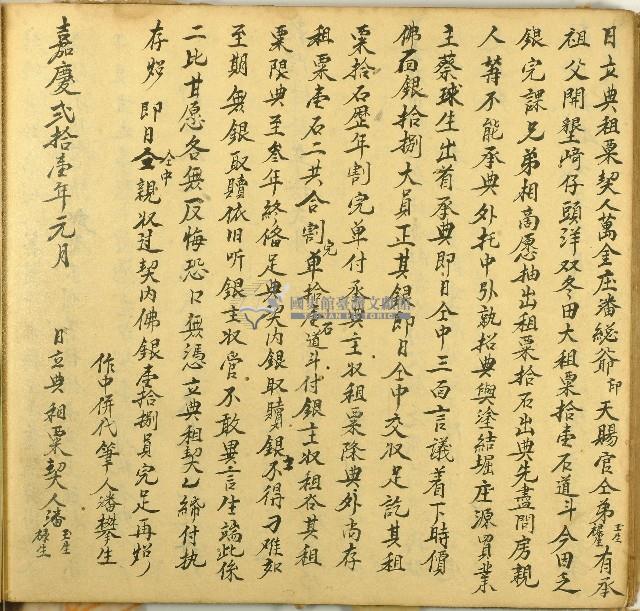 日立典租粟契人萬金庄潘総爺印天賜官仝弟玉生祿生有承
祖父開墾崎仔頭洋双冬田大租粟拾壹石道斗今因乏
銀完課兄弟相商愿抽出租粟拾石出典先盡問房親
人等不能承典外托中引就招典與塗結堀庄源買業
主蔡球生出首承典即日仝中三面言議着下時價
佛面銀拾捌大員正其銀即日仝中交收足訖其租
粟拾石歷年割完单付承典主收租粟除典外尚存
租粟壹石二共合割完单拾壹石道斗付銀主收租谷其租
粟限典至叁年終俻足典契内銀取贖銀主不得刁难如
至期無銀取贖依旧听銀主收管不敢異言生端此係
二比甘愿各無反悔恐口無憑立典租契乙紙付执
存炤 即日仝中親收过契内佛銀壹拾捌員完足再炤
作中併代筆人潘攀生
嘉慶弍拾壹年元月
日立典租粟契人潘玉生祿生
國史館臺灣文獻館
TAIWAN HISTORICA